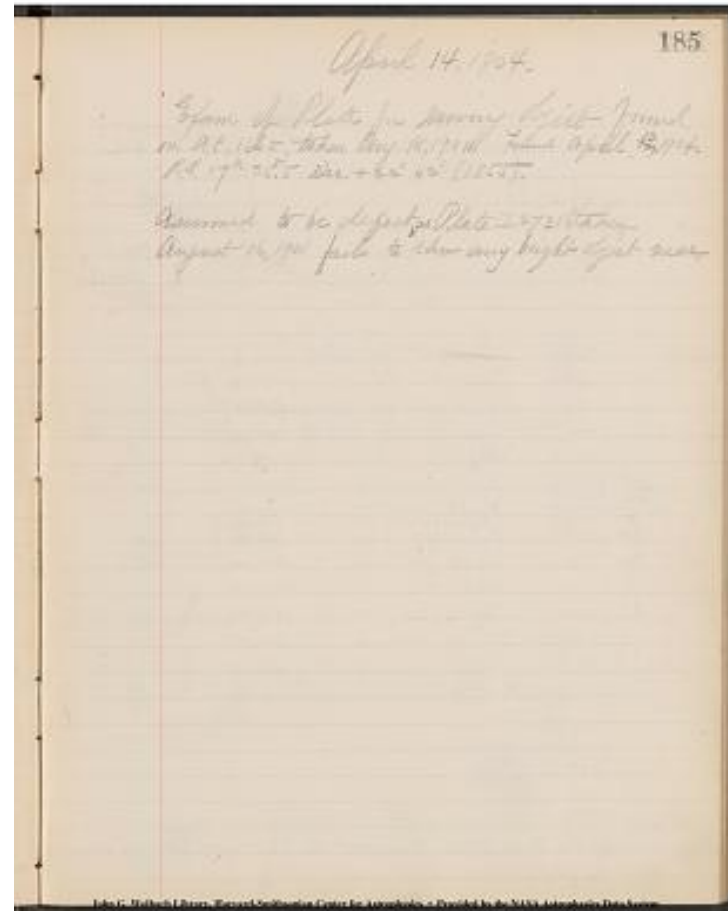 185
April 14. 1904.
Exam of Plate for moving object found
on A.C. taken Aug. 16, 1901 Found April 1904.
R.A. 17h Dec. + 1855.
Assumed to be defect, as Plate taken
August 16, 1901 fails to show any bright object near
John G. Wolbach Library, Harvard-Smithsonian Center for Astrophysics • Provided by the NASA Astrophysics Data System